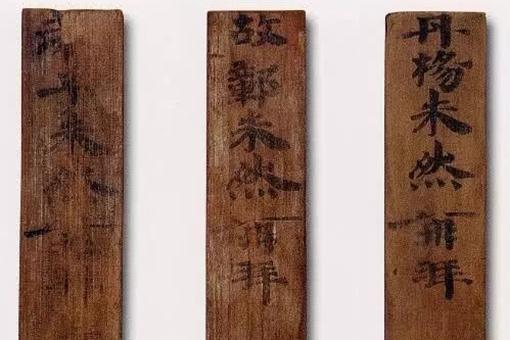 丹楊朱然再拜
故鄣朱然再拜
弟子朱然